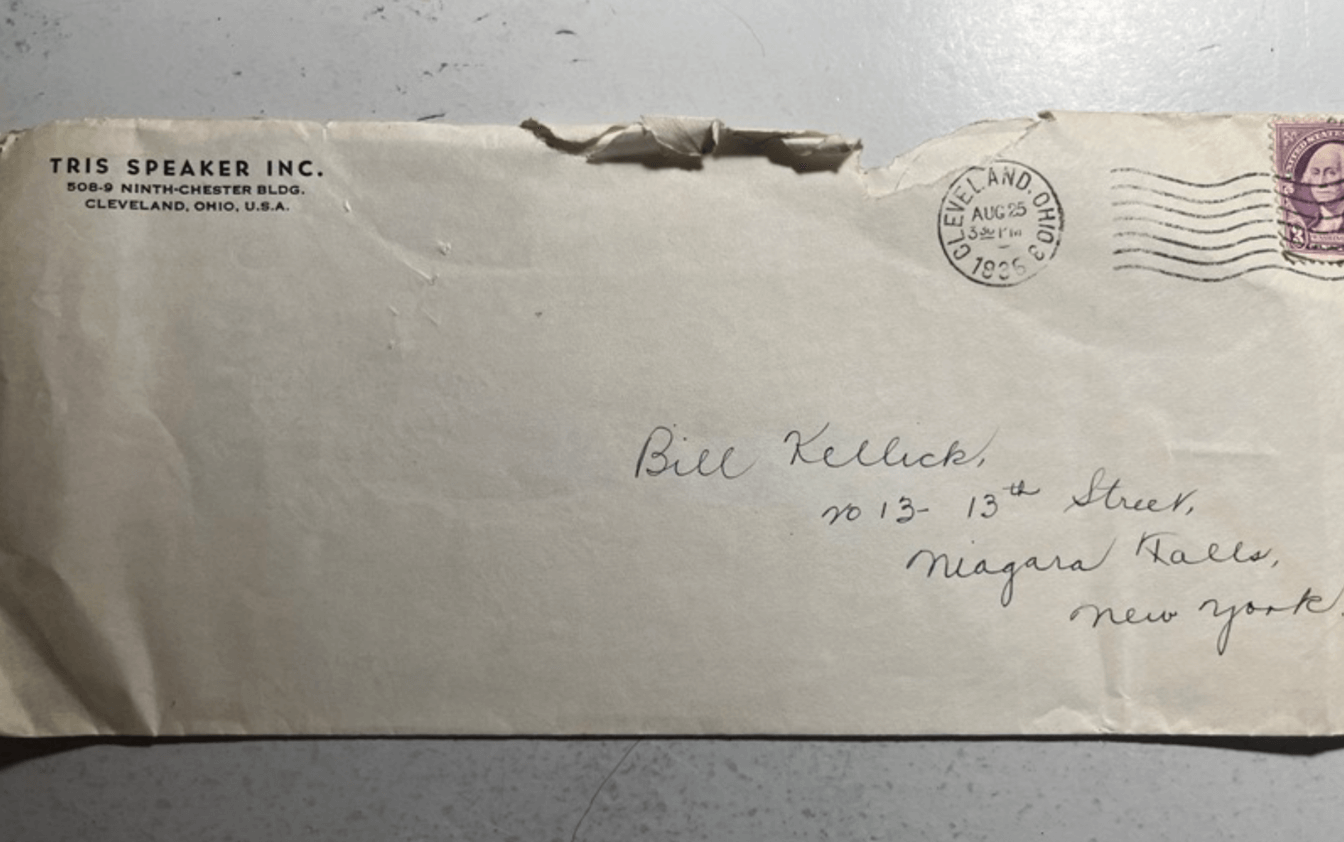 TRIS SPEAKER INC.
508-9 NINTH-CHESTER BLDG.
CLEVELAND, OHIO, U.S.A.
CLEVELAND, OHIO 3
AUG 25
3 30 PM
1936
UNITED STATES
3
Bill Kellick,
no 13- 13th Street,
Niagara Falls,
New York.